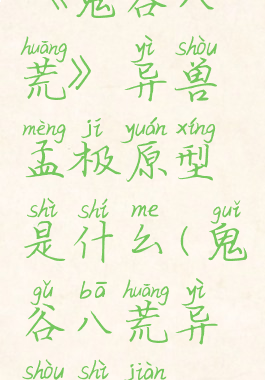 《鬼谷八
huāng yì shòu
荒》异兽
mèng jí yuán xíng
孟极原型
shì shí me guǐ
是什么(鬼
gǔ bā huāng yì
谷八荒异
shòu shì jiàn